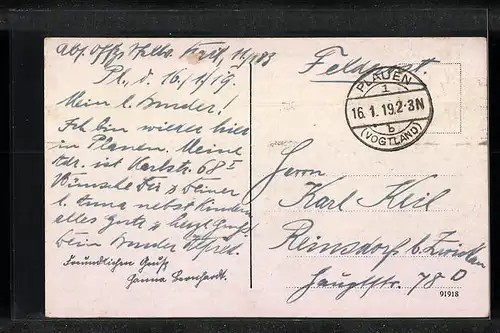 Feldpost.
Pl., d. 16./1./19.
Mein l. Bruder!
Ich bin wieder hier
in Plauen. Meine
Adr. ist Karlstr. 68 I
Wünsche Dir u. Deiner
l. Anna nebst Kindern
alles Gute, u. herzl. Gruß
Dein Bruder
Freundlichen Gruß
Hanna Leonhardt.
PLAUEN
1
16.1.19.2-3N
b
(VOGTLAND)
Herrn
Karl Keil
Reinsdorf b. Zwickau
Hauptstr. 78 D
91918